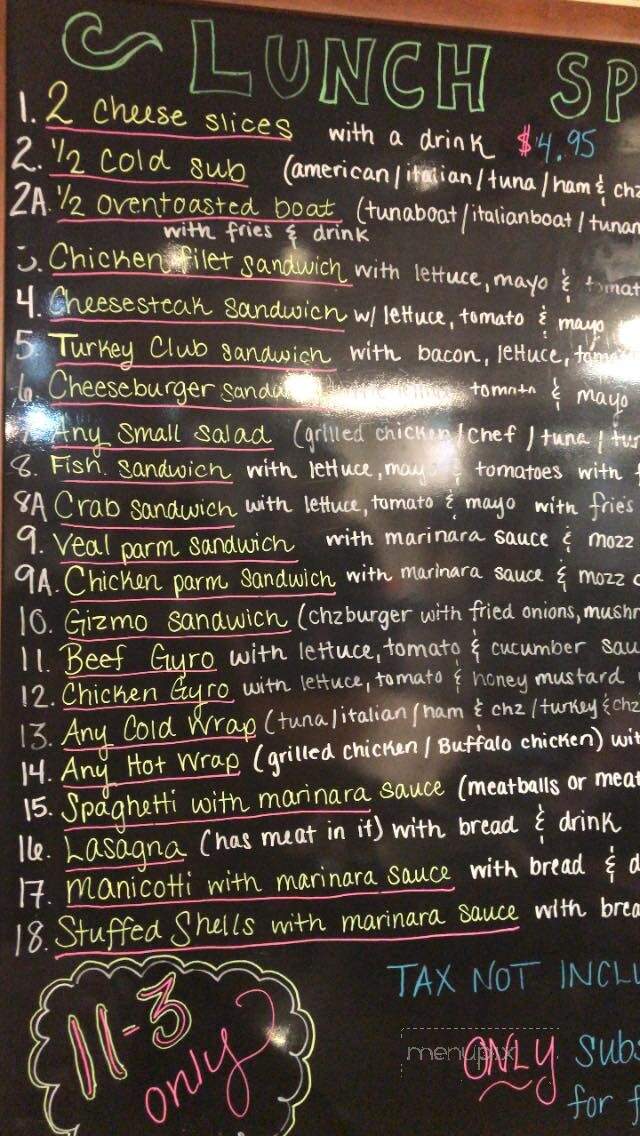 LUNCH SP
1. 2 cheese slices with a drink $4.95
2. 1/2 cold sub (american/italian/tuna/ham & chz
2A. 1/2 oventoasted boat (tunaboat/italianboat/tunam
with fries & drink
3. Chicken filet sandwich with lettuce, mayo & tomat
4. Cheesesteak sandwich w/ lettuce, tomato & mayo
5. Turkey Club sandwich with bacon, lettuce,
6. Cheeseburger & mayo
Any Small Salad (grilled chicken/chef/tuna/tur
8. Fish. sandwich with lettuce, mayo & tomatoes with
8A Crab sandwich with lettuce, tomato & mayo with fries
9. Veal parm sandwich with marinara sauce & mozz
9A. Chicken parm sandwich with marinara sauce & mozz c
10. Gizmo sandwich (chzburger with fried onions, mushr
11. Beef Gyro with lettuce, tomato & cucumber sau
12. Chicken Gyro with lettuce, tomato & honey mustard
13. Any Cold Wrap (tuna/italian/ham & chz/turkey & chz
14. Any Hot Wrap (grilled chicken/Buffalo chicken) wit
15. Spaghetti with marinara sauce (meatballs or meat
16. Lasagna (has meat in it) with bread & drink
17. Manicotti with marinara sauce with bread & d
18. Stuffed Shells with marinara sauce with brea
TAX NOT INCLU
11-3
only
menupix
ONLY subs
for f